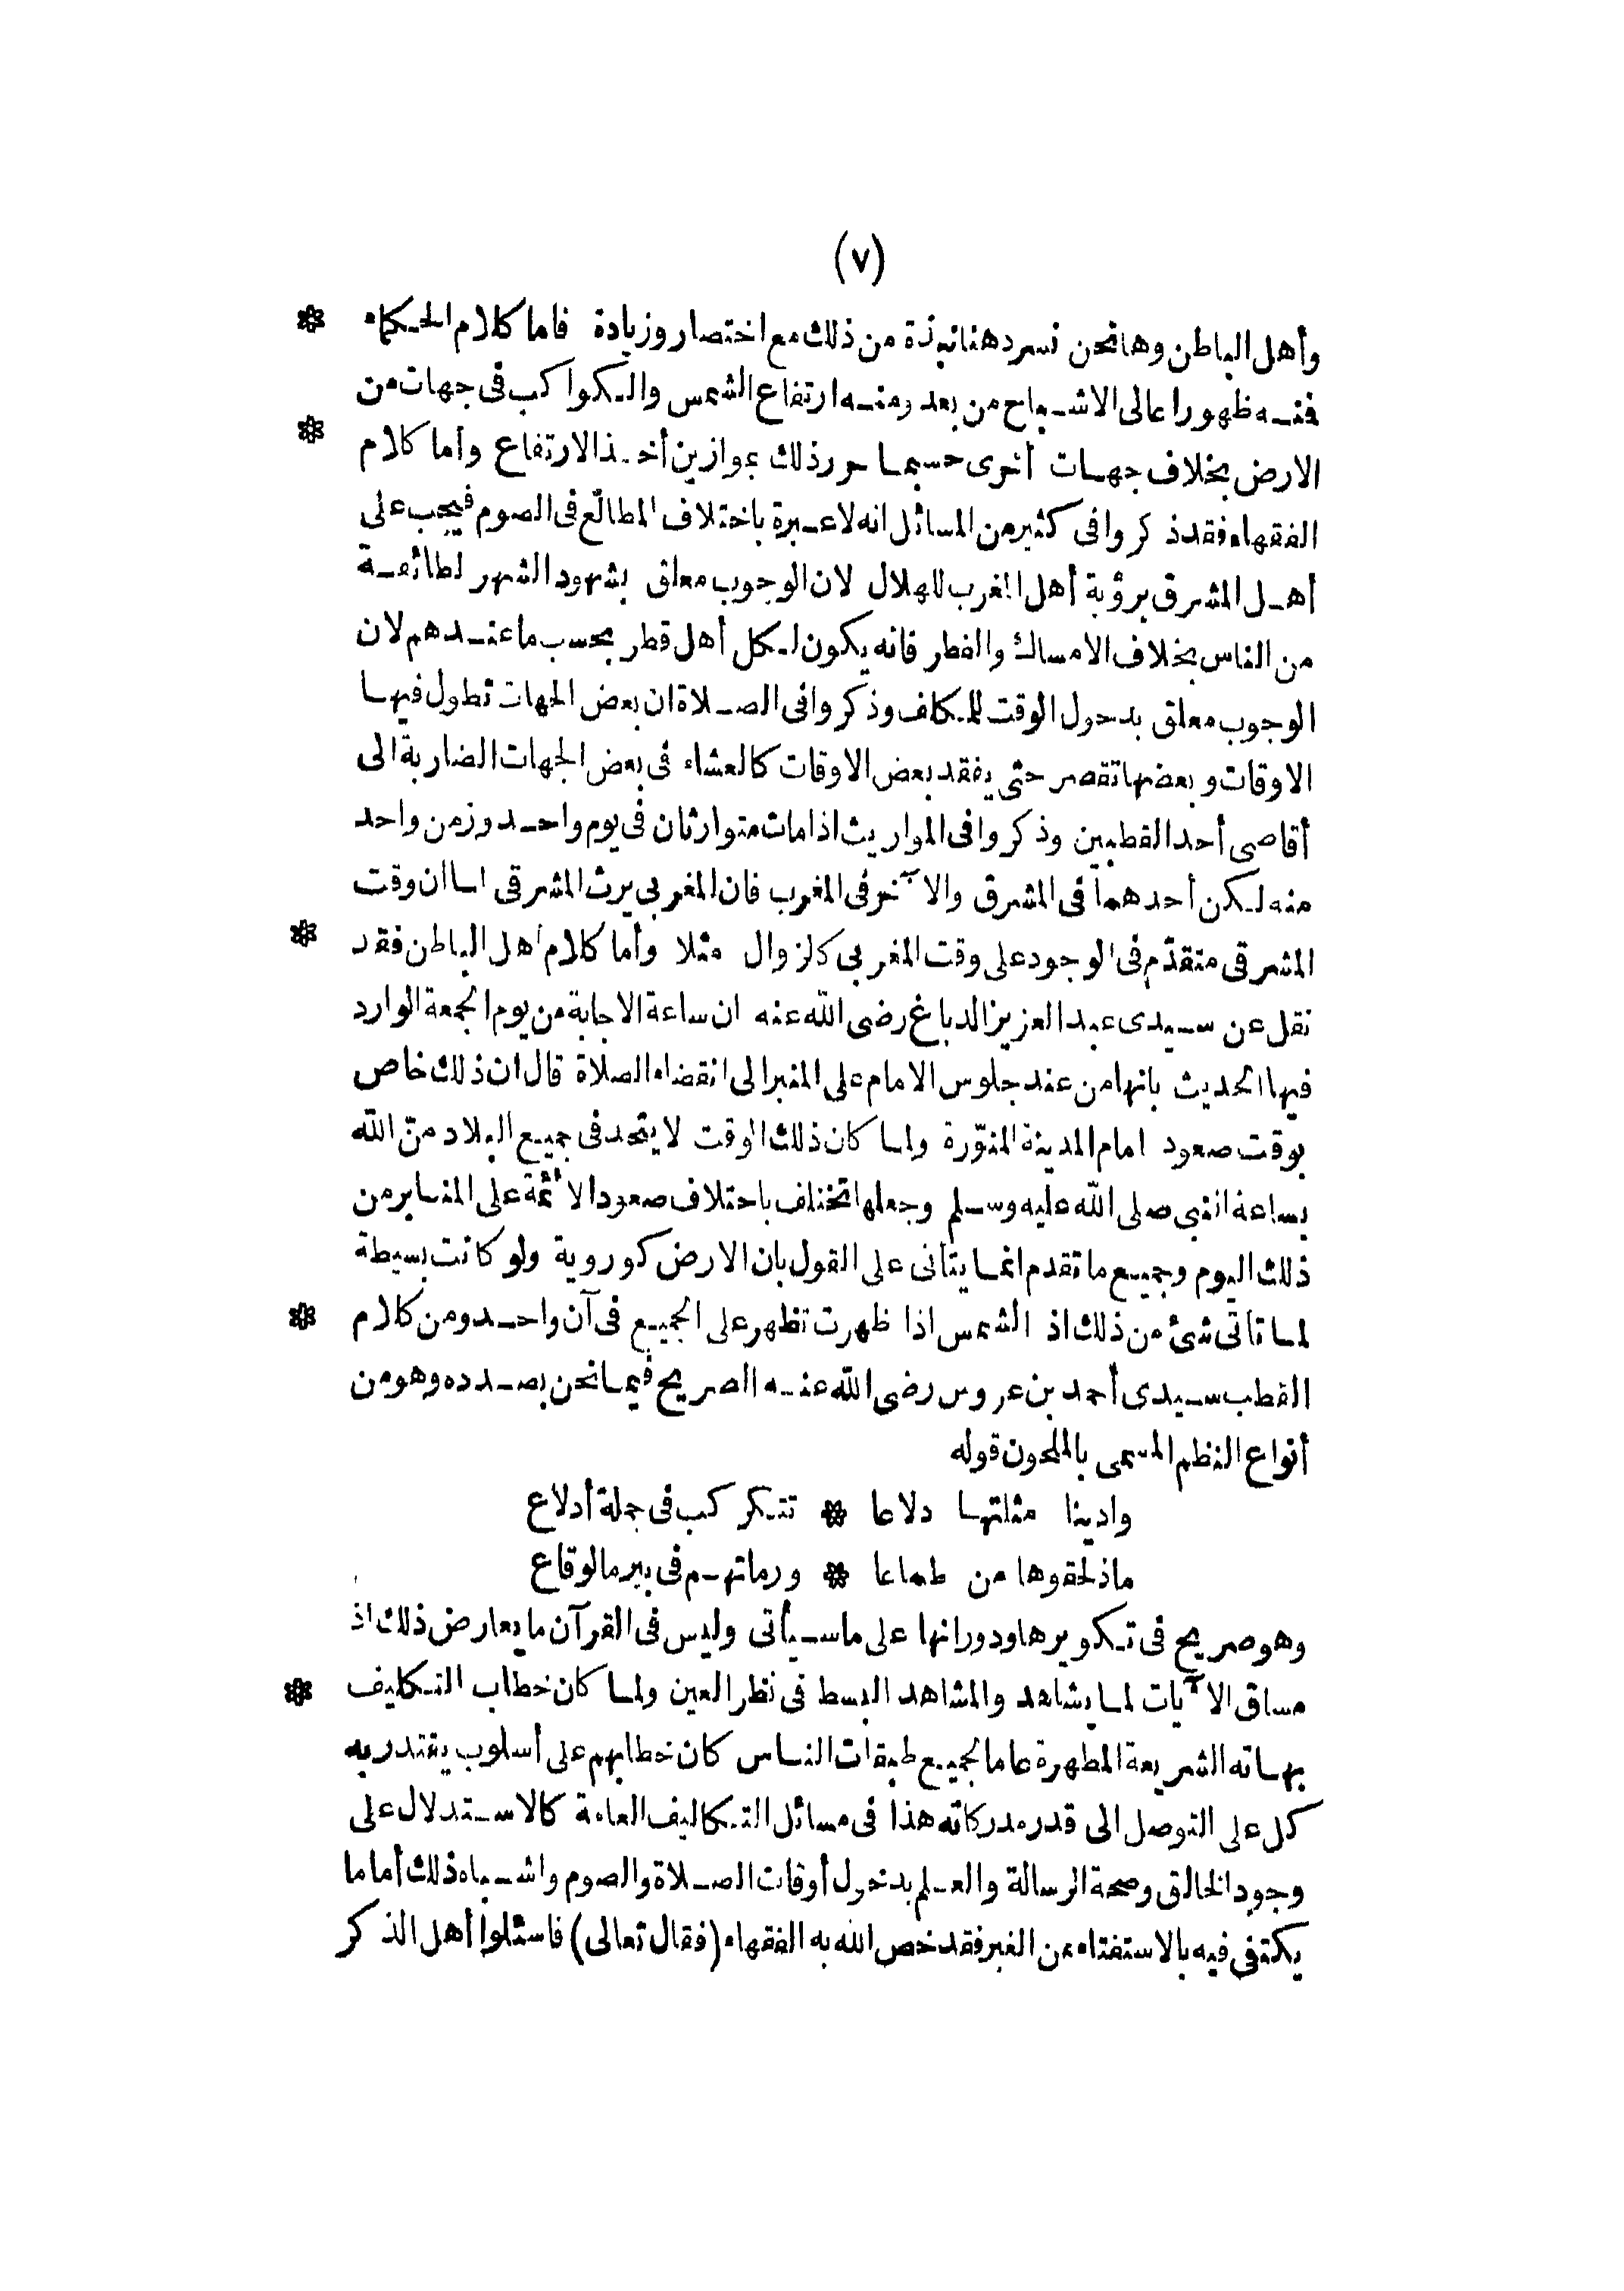 (٧)
وأهل الباطن وها نحن نسرد هنا نبذة من ذلك مع اختصار وزيادة فاما كلام الحكماء *
فمنه ظهور اعالى الاشباح من بعد ومنه ارتفاع الشمس والكواكب فى جهات من
الارض بخلاف جهات أخرى حسبما حرر ذلك بموازين أخذ الارتفاع وأما كلام *
الفقهاء فقد ذكروا فى كثير من المسائل انه لا عبرة باختلاف المطالع فى الصوم فيجب على
أهل المشرق برؤية أهل المغرب للهلال لان الوجوب معلق بشهود الشهر لطائفة
من الناس بخلاف الامساك والفطر فانه يكون لكل أهل قطر بحسب ما عندهم لان
الوجوب معلق بدخول الوقت للمكلف وذكروا فى الصلاة ان بعض الجهات تطول فيها
الاوقات وبعضها تقصر حتى يفقد بعض الاوقات كالعشاء فى بعض الجهات الضاربة الى
أقاصى أحد القطبين وذكروا فى المواريث اذا مات متوارثان فى يوم واحد وزمن واحد
منه لكن أحدهما فى المشرق والآخر فى المغرب فان المغربى يرث المشرقى لما ان وقت
المشرقى متقدّم فى الوجود على وقت المغربى كالزوال مثلا وأما كلام أهل الباطن فقد *
نقل عن سيدى عبد العزيز الدباغ رضى الله عنه ان ساعة الاجابة من يوم الجمعة الوارد
فيها الحديث بانها من عند جلوس الامام على المنبر الى انقضاء الصلاة قال ان ذلك خاص
بوقت صعود امام المدينة المنوّرة ولما كان ذلك الوقت لا يتحد فى جميع البلاد منّ الله
بساعة النبى صلى الله عليه وسلم وجعلها تختلف باختلاف صعود الائمة على المنابر من
ذلك اليوم وجميع ما تقدم انما يتأتى على القول بان الارض كوروية ولو كانت بسيطة
لما تأتى شئ من ذلك اذ الشمس اذا ظهرت تظهر على الجميع فى آن واحد ومن كلام *
القطب سيدى أحمد بن عروس رضى الله عنه الصريح فيما نحن بصدده وهو من
أنواع النظم المسمى بالملحون قوله
وادينا مثلتها دلاعا * تتكركب فى جملة أدلاع
ماذ لحقوها من طماعا * ورماتهم فى بير ما لو قاع
وهو صريح فى تكويرها ودورانها على ما سيأتى وليس فى القرآن ما يعارض ذلك اذ
مساق الآيات لما يشاهد والمشاهد البسط فى نظر العين ولما كان خطاب التكليف *
بهاته الشريعة المطهرة عاما لجميع طبقات الناس كان خطابهم على أسلوب يقتدر به
كل على التوصل الى قدر مدركاته هذا فى مسائل التكاليف العامة كالاستدلال على
وجود الخالق وصحة الرسالة والعلم بدخول أوقات الصلاة والصوم واشباه ذلك أما ما
يكتفى فيه بالاستفتاء من الغير فقد خص الله به الفقهاء (فقال تعالى) فاسئلوا أهل الذكر